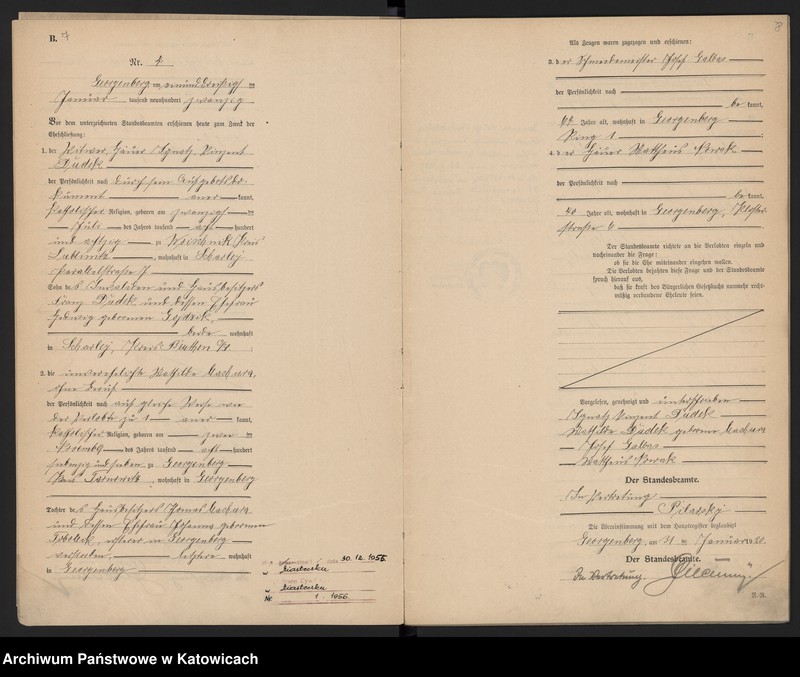 B. 7
Nr. 4
Georgenberg am einunddreißigsten
Januar tausend neunhundert zwanzig
Vor dem unterzeichneten Standesbeamten erschienen heute zum Zweck der
Eheschließung:
1. der Witwer, Häuer Ignatz Vinzent
Dudek
der Persönlichkeit nach durch sein Aufgebotsdo-
kument aner kannt,
katholischer Religion, geboren am zwanzigsten
Juli des Jahres tausend acht hundert
und achtzig zu Woischnik, Kreis
Lublinitz, wohnhaft in Scharley
Parallelstraße 7
Sohn des Invaliden und Hausbesitzers
Franz Dudek und dessen Ehefrau
Hedwig geborenen
beide wohnhaft
in Scharley, Kreis Beuthen O/S.
2. die unverehelichte Mathilde Machura,
ohne Beruf
der Persönlichkeit nach auf gleiche Weise wie
der Verlobte zu 1 aner kannt,
katholischer Religion, geboren am zwei ten
des Jahres tausend acht hundert
siebenzig und sieben zu Georgenberg
Kreis Tarnowitz, wohnhaft in Georgenberg
Tochter des Hausbesitzers Thomas Machura
und dessen Ehefrau Johanna geborenen
ersterer in Georgenberg
verstorben, letztere wohnhaft
in Georgenberg
30.12.1956
Nr. 1 1956
8
Als Zeugen waren zugezogen und erschienen:
3. der Schmiedemeister Josef Gallas
der Persönlichkeit nach
be kannt,
Jahre alt, wohnhaft in Georgenberg
Ring 1
4. der Häuer Matthäus Nowak
der Persönlichkeit nach
be kannt,
40 Jahre alt, wohnhaft in Georgenberg, Kloster-
straße 6
Der Standesbeamte richtete an die Verlobten einzeln und
nacheinander die Frage:
ob sie die Ehe miteinander eingehen wollen.
Die Verlobten bejahten diese Frage und der Standesbeamte
sprach hierauf aus,
daß sie kraft des Bürgerlichen Gesetzbuchs nunmehr recht-
mäßig verbundene Eheleute seien.
Vorgelesen, genehmigt und unterschrieben
Ignatz Vinzent Dudek
Mathilde Dudek geborene Machura
Josef Gallas
Matthäus Nowak
Der Standesbeamte.
In Vertretung
Pilarsky
Die Übereinstimmung mit dem Hauptregister beglaubigt
Georgenberg, am 31 ten Januar 1920.
Der Standesbeamte.
In Vertretung.
Archiwum Państwowe w Katowicach